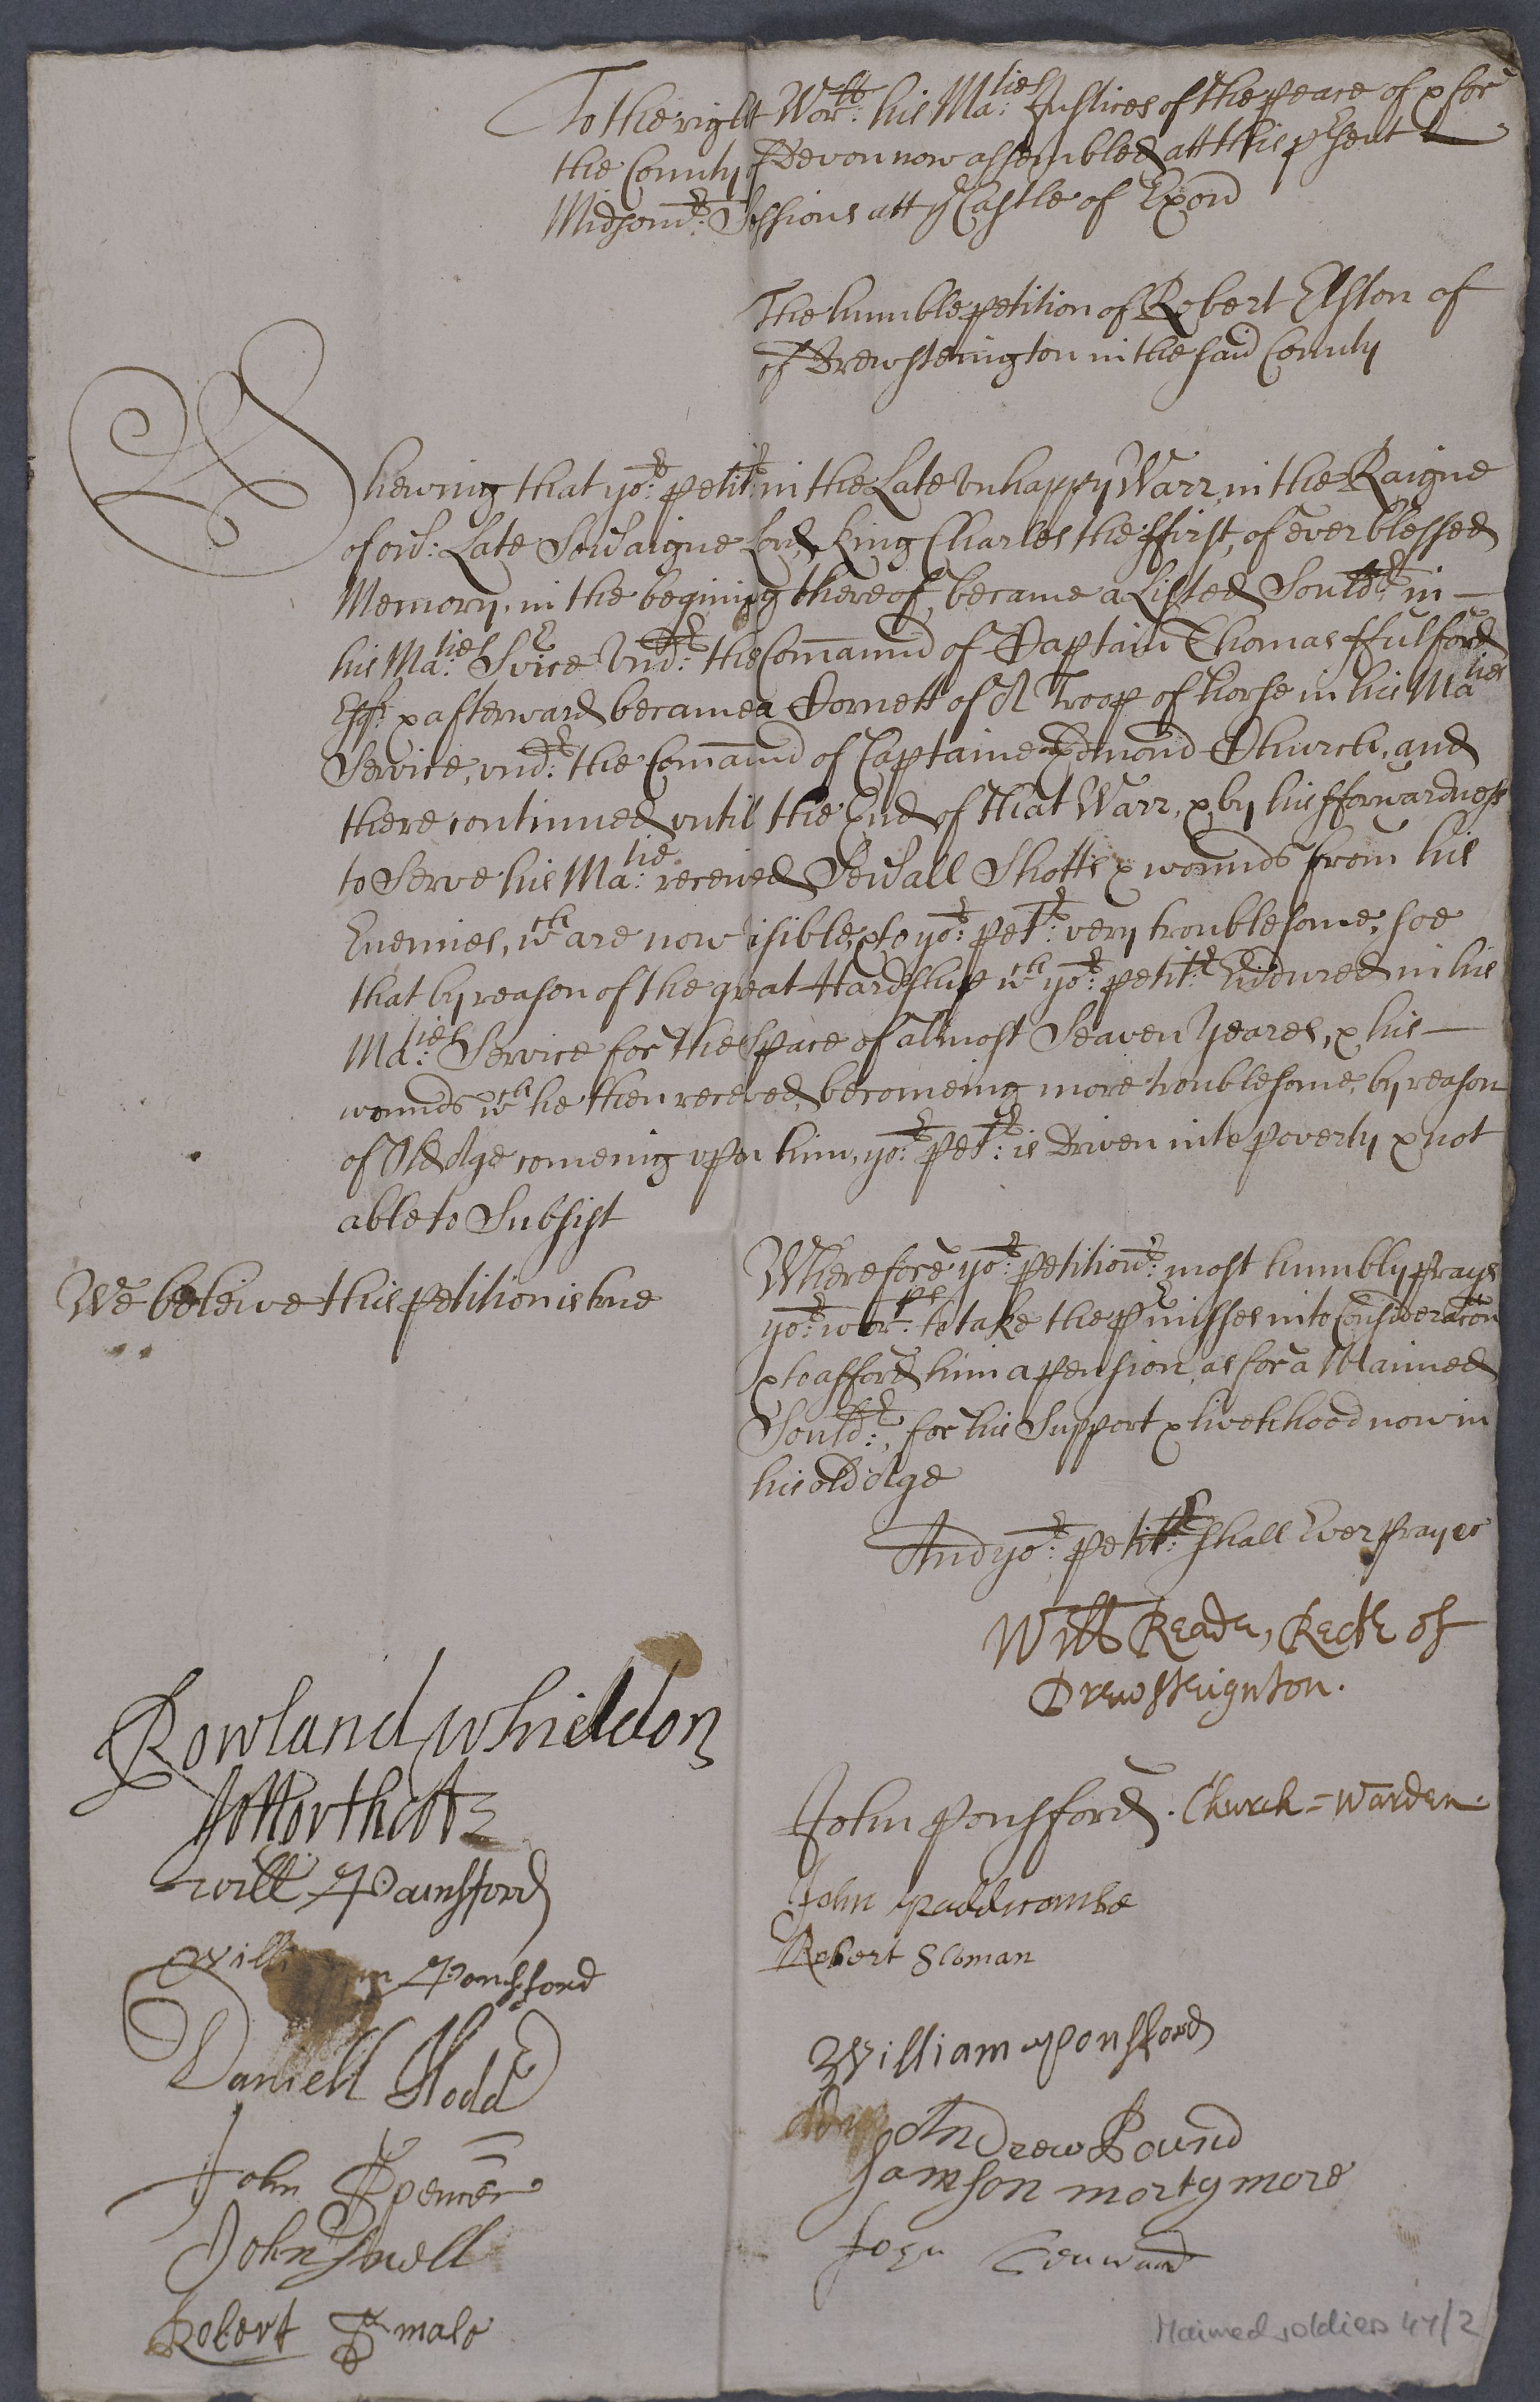 To the right Wor:ll his Ma:ties Justices of the peace of & for
the County of Devon now assembled att this p'sent
Midsom:r Sessions att ye Castle of Exon
The humble petition of Robert Elston of
of Drewsteington in the said County
Shewing that yo:r petit:r in the Late Vnhappy Warr, in the Raigne
of our: Late Sou'aigne Lord, King Charles the ffirst, of ever blessed
Memory, in the begining thereof, became a Listed Sould:r in —
his Ma:ties S'vice Vnd:r the Comaund of Captain Thomas ffulford
Esq:r & afterward became a Cornett of A Troop of horse in his Ma:ties
Service, vnd:r the Comaund of Captaine Edmond Church, and
there continued vntil the End of that Warr, & by his fforwardness
to Serve his Ma:tie received Seu'all Shotts & wounds from his
Enemies, wch are now visible, & to yo:r pet:r very troublesome, soe
that by reason of the great Hardship wch yo:r petit:r Endured in his
Ma:ties Service for the Space of almost Seaven Yeares, & his —
wounds wch he then received, becomeing more troublesome, by reason
of Old Age comeing vpon him, yo:r pet:r is Driven into poverty & not
able to Subsist
We beleive this petition is true
Wherefore yo:r petition:r most humbly prays
yo:r wor:ps to take the p'misses into Consideracon
& to afford him a pension, as for a Maimed
Sould:r, for his Support & livelihood now in
his old Age
And yo:r petit:r shall Ever pray &c
Will Reade, Rectr of
Drewsteignton.
Rowland Whiddon
Jo Northcott
Will Painsford
William Ponsford
Daniell Hodd
John Spencer
John Snell
Robert Smale
John Ponsford. Church=Warden.
John Paddicombe
Robert Sloman
William Ponsford
Andrew Pound
Samson mortymore
John
Maimed soldiers 47/2